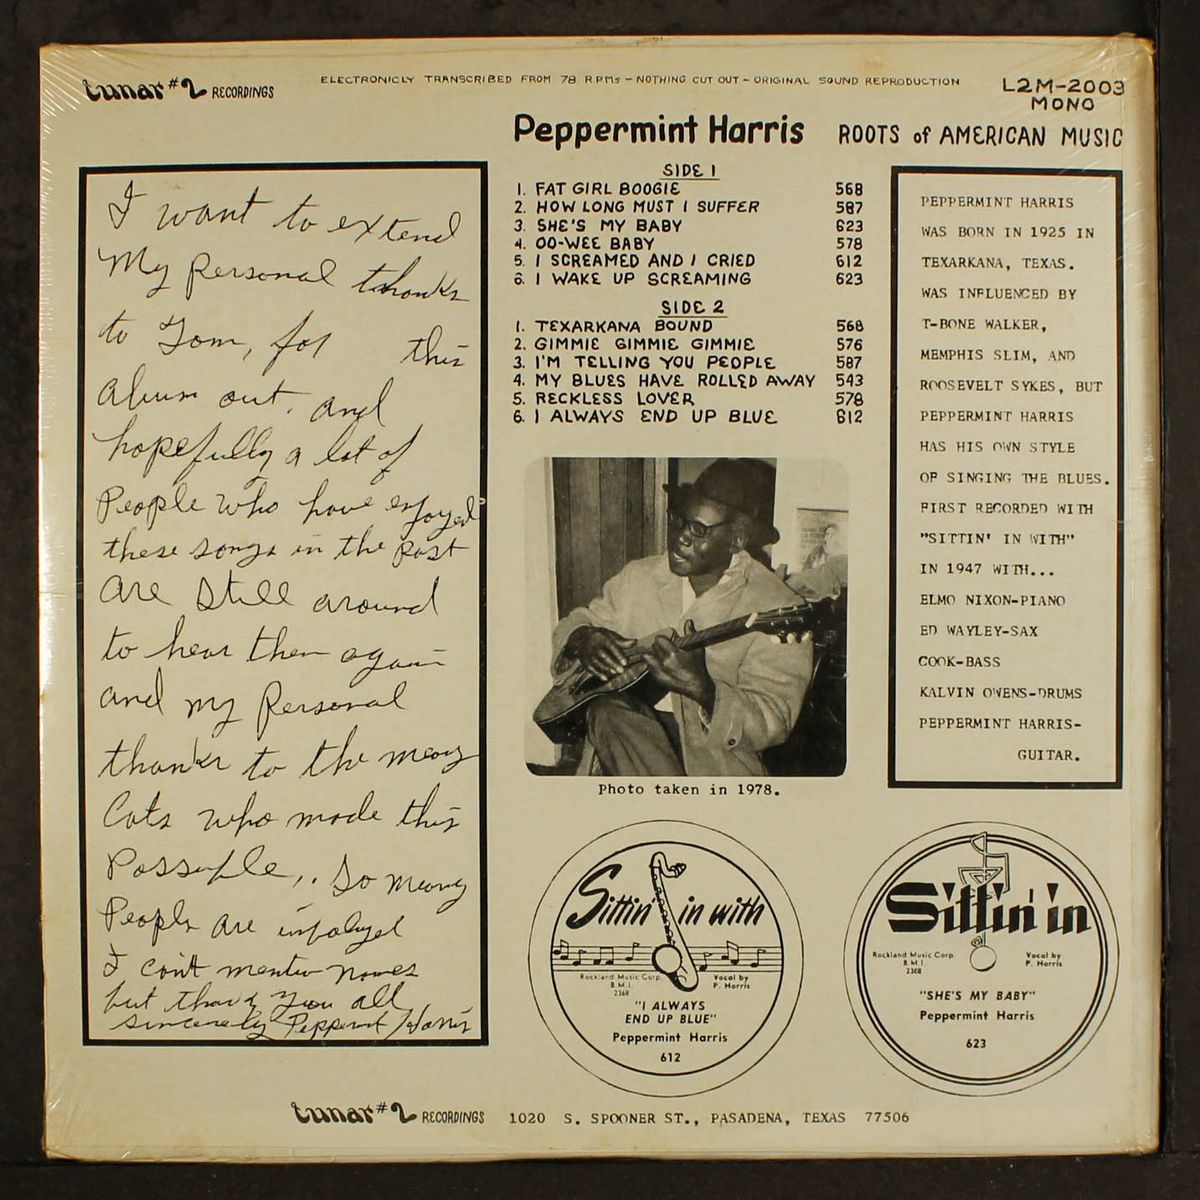 Lunar #2 RECORDINGS
ELECTRONICLY TRANSCRIBED FROM 78 R.P.M.s – NOTHING CUT OUT – ORIGINAL SOUND REPRODUCTION
L2M-2003
MONO
Peppermint Harris ROOTS of AMERICAN MUSIC
I want to extend
My Personal thanks
to Tom, for this
album out. and
hopefully a lot of
People who have enjoyed
these songs in the past
are still around
to hear them again
and my Personal
thanks to the many
Cats who made this
Possible,. So many
People are
I can't mention names
but thank you all
Sincerely Peppermint Harris
SIDE 1
1. FAT GIRL BOOGIE 568
2. HOW LONG MUST I SUFFER 587
3. SHE'S MY BABY 623
4. OO-WEE BABY 578
5. I SCREAMED AND I CRIED 612
6. I WAKE UP SCREAMING 623
SIDE 2
1. TEXARKANA BOUND 568
2. GIMMIE GIMMIE GIMMIE 576
3. I'M TELLING YOU PEOPLE 587
4. MY BLUES HAVE ROLLED AWAY 543
5. RECKLESS LOVER 578
6. I ALWAYS END UP BLUE 612
PEPPERMINT HARRIS
WAS BORN IN 1925 IN
TEXARKANA, TEXAS.
WAS INFLUENCED BY
T-BONE WALKER,
MEMPHIS SLIM, AND
ROOSEVELT SYKES, BUT
PEPPERMINT HARRIS
HAS HIS OWN STYLE
OF SINGING THE BLUES.
FIRST RECORDED WITH
"SITTIN' IN WITH"
IN 1947 WITH...
ELMO NIXON-PIANO
ED WAYLEY-SAX
COOK-BASS
KALVIN OWENS-DRUMS
PEPPERMINT HARRIS-
GUITAR.
Photo taken in 1978.
Sittin' in with
Rockland Music Corp.
B.M.I.
2368
Vocal by
P. Harris
"I ALWAYS
END UP BLUE"
Peppermint Harris
612
Sittin' in
Rockland Music Corp.
B.M.I.
2368
Vocal by
P. Harris
"SHE'S MY BABY"
Peppermint Harris
623
Lunar #2 RECORDINGS 1020 S. SPOONER ST., PASADENA, TEXAS 77506